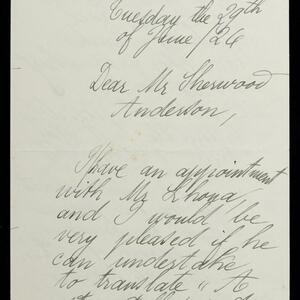 Tuesday the 29th
of June/26
Dear Mr Sherwood
Anderson,
I have an appointment
with Mr Llona,
and I would be
very pleased if he
can undertake
to translate "A